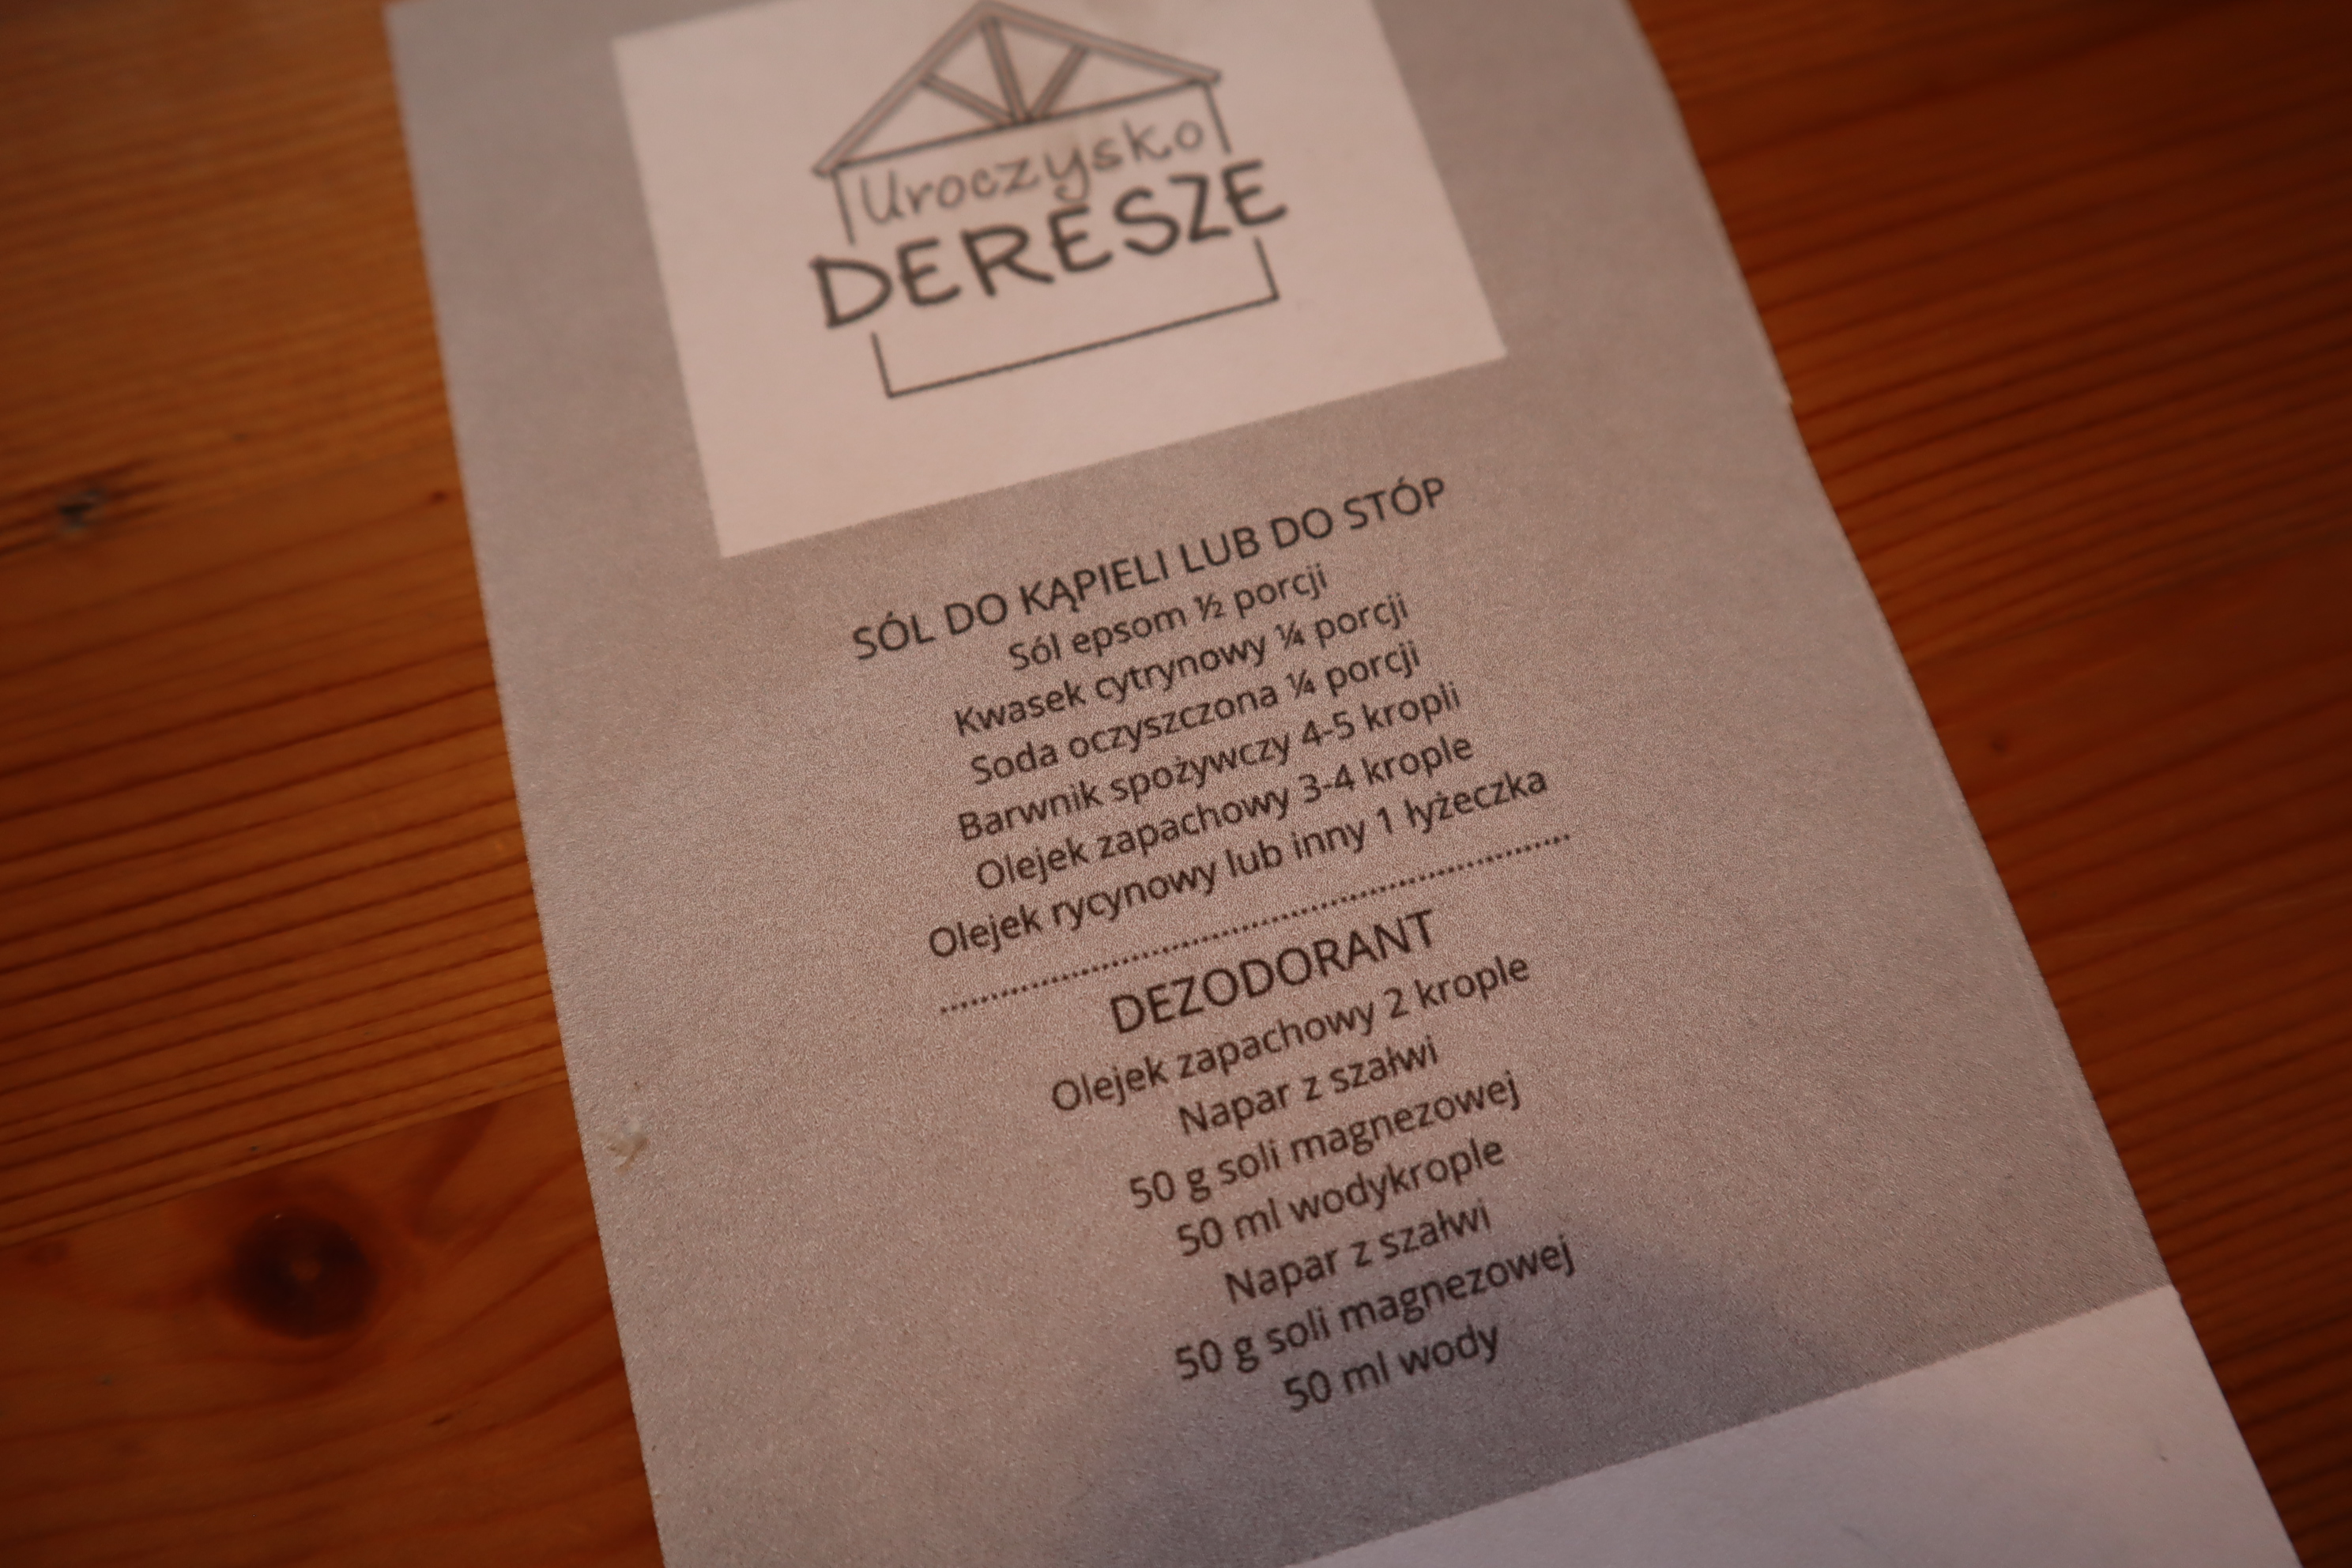 Uroczysko
DERESZE
SÓL DO KĄPIELI LUB DO STÓP
Sól epsom ½ porcji
Kwasek cytrynowy ¼ porcji
Soda oczyszczona ¼ porcji
Barwnik spożywczy 4-5 kropli
Olejek zapachowy 3-4 krople
Olejek rycynowy lub inny 1 łyżeczka
DEZODORANT
Olejek zapachowy 2 krople
Napar z szałwi
50 g soli magnezowej
50 ml wodykrople
Napar z szałwi
50 g soli magnezowej
50 ml wody